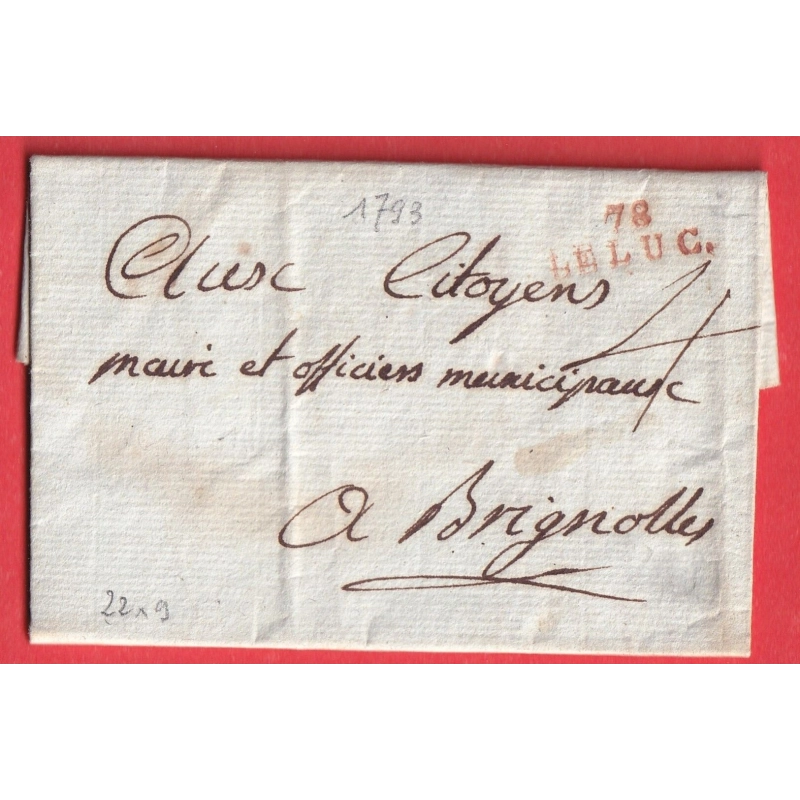 1793
78
LE LUC.
Aux Citoyens
4
maire et officiers municipaux
A Brignolles
22 x 9